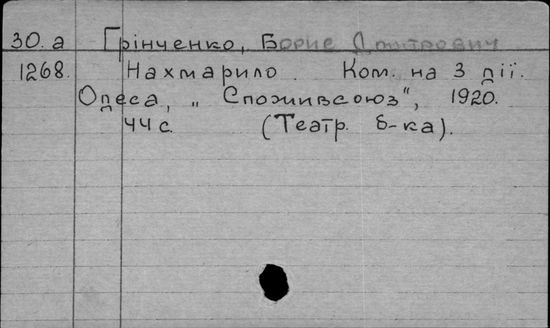 30.а Грінченко, Борис Дмитрович
1268. Нахмарило. Ком. на 3 дії.
Одеса, „Споживсоюз", 1920.
44 с. (Театр. б-ка).